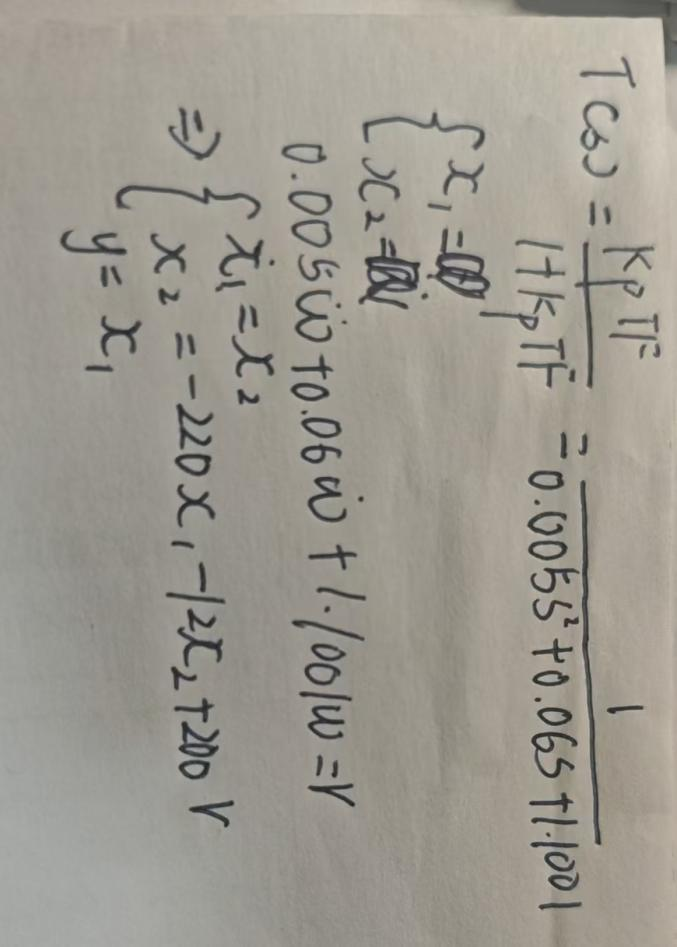 T(s) = \frac{K_p TF}{1+K_p TF} = \frac{1}{0.005s^2+0.06s+1.1001}
{ x_1 =
{ x_2 =
0.005ẅ+0.06ẇ+1.1001w=r
⇒ { ẋ_1 = x_2
{ x_2 = -220x_1-12x_2+200r
y = x_1